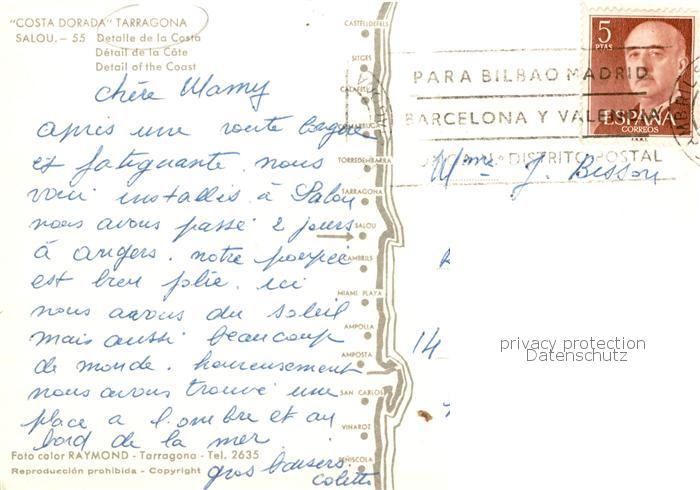 "COSTA DORADA" TARRAGONA
SALOU. - 55 Detalle de la Costa
Détail de la Côte
Detail of the Coast
chère Mamy
après une route
et fatiguante. nous
voici installés à Salou
nous avons passé 2 jours
à angers. notre poupée
est bien jolie. ici
nous avons du soleil
mais aussi beaucoup
de monde. heureusement
nous avons trouvé une
place a l'ombre et au
bord de la mer
gros baisers.
Colette
Foto color RAYMOND - Tarragona - Tel. 2635
Reproducción prohibida - Copyright
CASTELLDEFELS
SITGES
TORREDEMBARRA
TARRAGONA
SALOU
CAMBRILS
MIAMI PLAYA
AMPOLLA
AMPOSTA
SAN CARLOS
VINAROZ
PEÑISCOLA
PARA BILBAO MADRID
BARCELONA Y VALENCIA
DISTRITO POSTAL
5
PTAS
ESPAÑA
CORREOS
Mme J. Bisson
14
privacy protection
Datenschutz